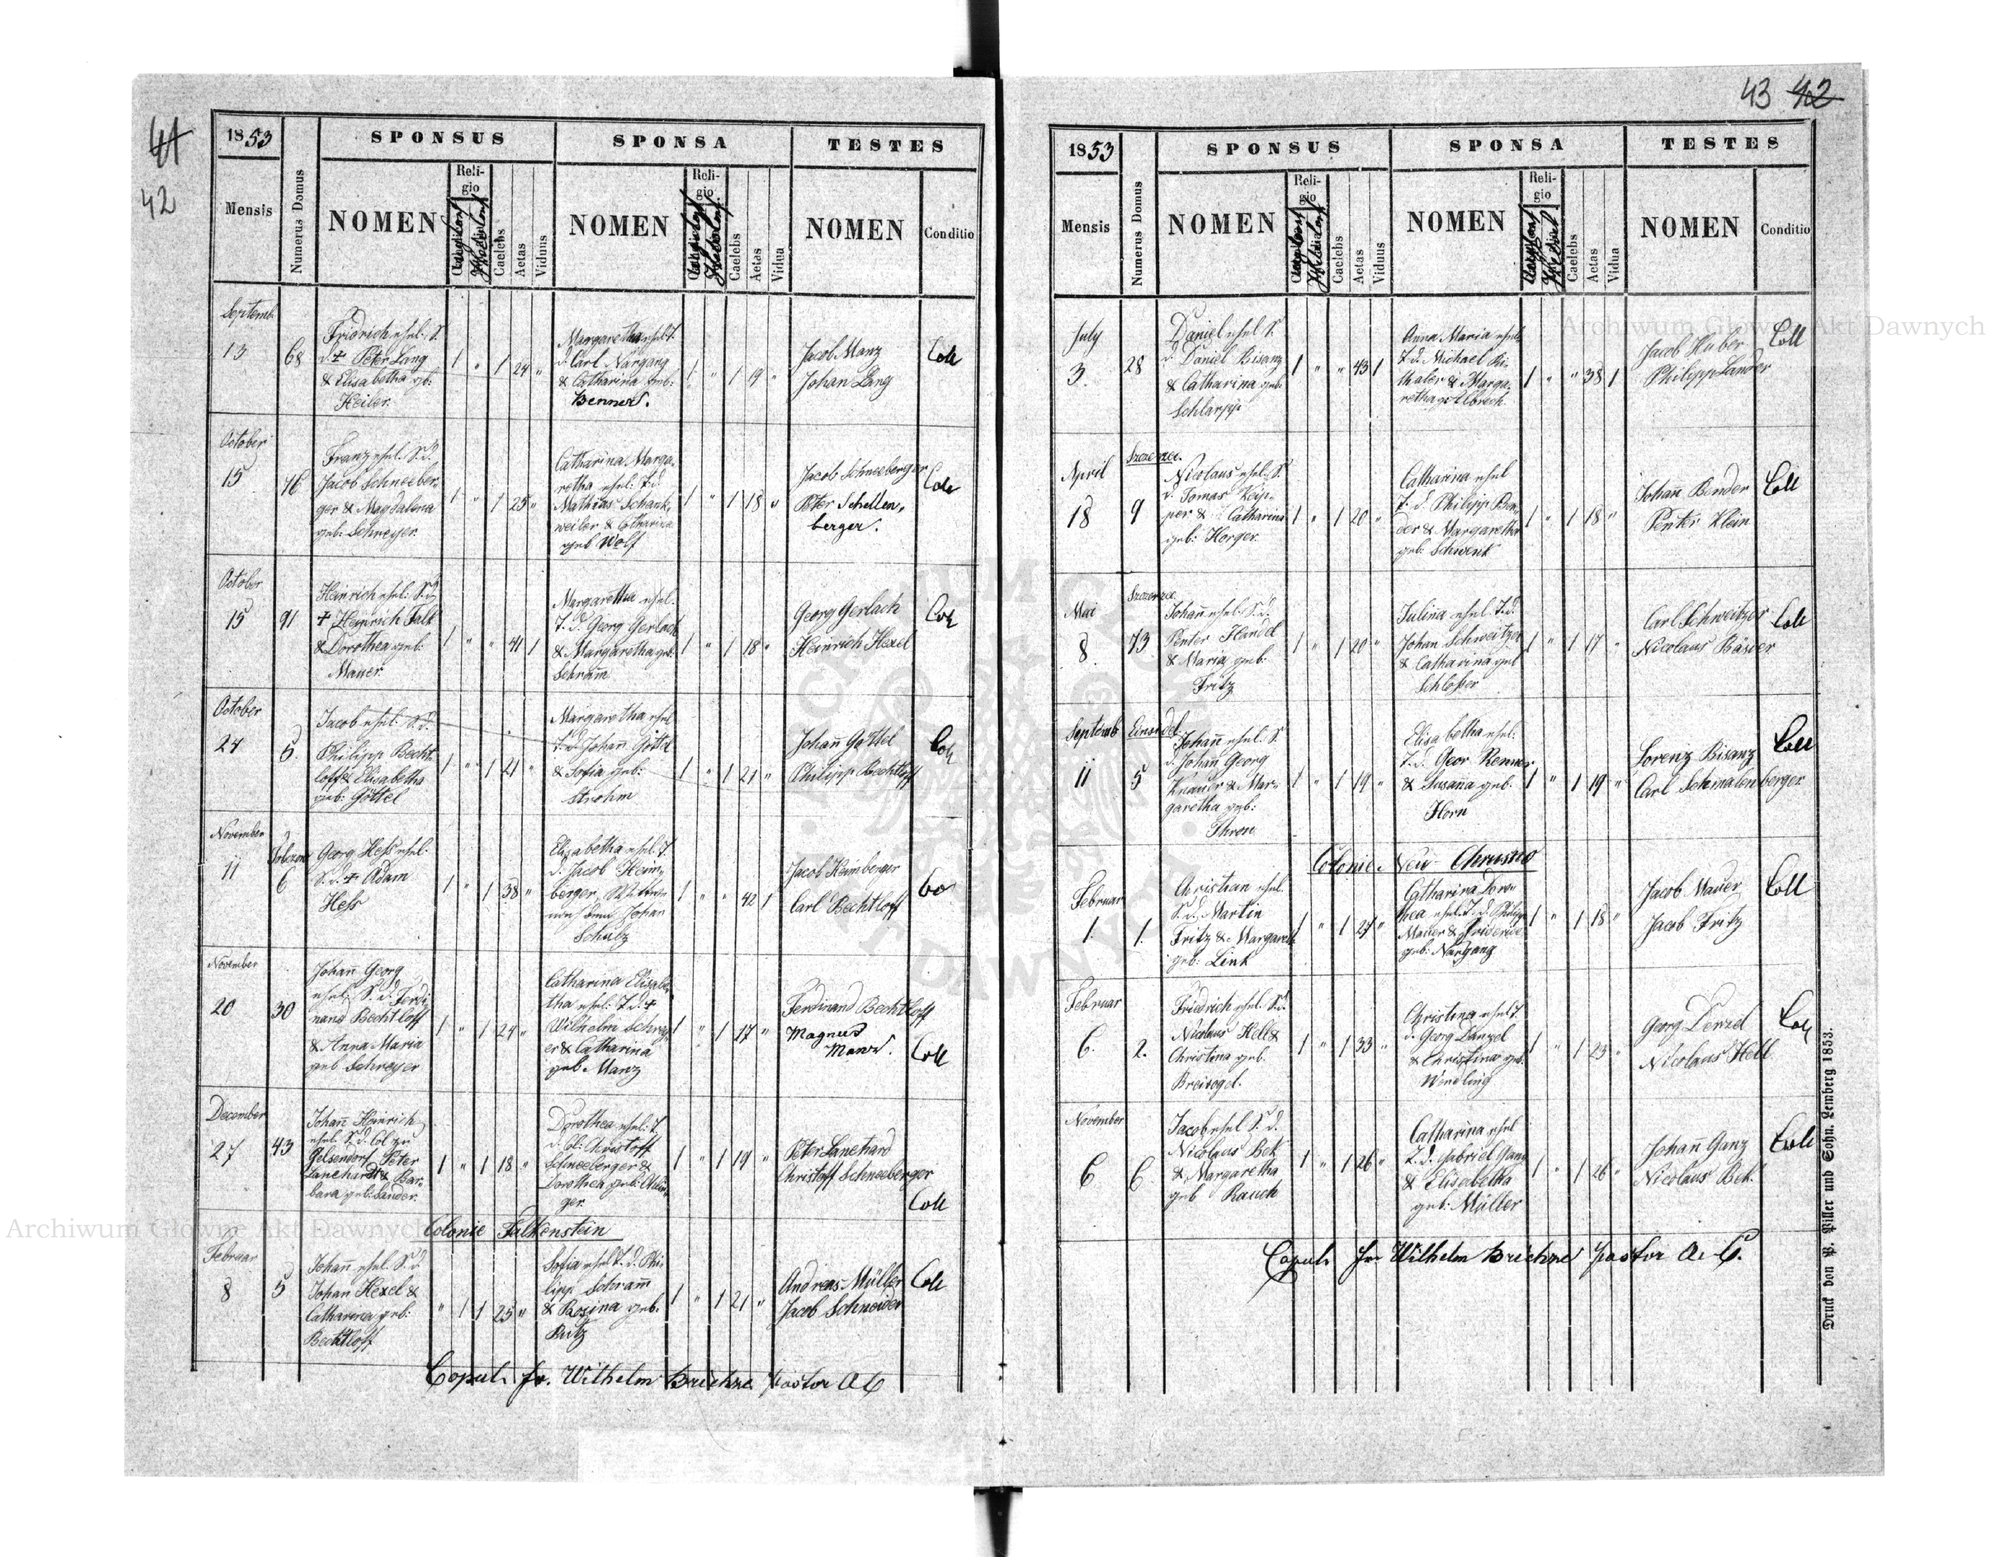 41
42
1853
SPONSUS
SPONSA
TESTES
Mensis
Numerus Domus
NOMEN
Religio
Caelebs
Aetas
Viduus
NOMEN
Religio
Caelebs
Aetas
Vidua
NOMEN
Conditio
Septemb
13
68
Fridrich ehel. S.
d. + Peter Lang
& Elisabetha gb:
Heiler.
1 " 1 24 "
Margaretha ehel. T.
d. Carl Nargang
& Catharina geb:
Benner.
1 " 1 19 "
Jacob Manz
Johan Lang
Coll
October
15
46
Franz ehel. S. d.
Jacob Schneeber-
ger & Magdalena
geb: Schweyer.
1 " 1 25 "
Catharina Marga-
retha ehel: T. d.
Mathias Schank-
weiler & Catharina
geb Wolf
1 " 1 18 "
Jacob Schneeberger
Peter Schellen-
berger.
Coll
October
15
91
Heinrich ehel: S. d.
+ Heinrich Falk
& Dorothea geb:
Mauer.
1 " " 41 1
Margaretha ehel.
T. d. Georg Gerlach
& Margaretha geb:
Schram̄
1 " 1 18 "
Georg Gerlach
Heinrich Hexel
Coll
October
24
5.
Jacob ehel: S. d.
Philipp Becht-
loff & Elisabetha
geb: Göttel
1 " 1 21 "
Margaretha ehel
T. d. Johan̄ Göttel
& Sofia geb:
Strohm
1 " 1 21 "
Johan̄ Göttel
Philipp Bechtloff
Coll
November
11
6
Georg Heß ehel.
S. d. + Adam
Heß
1 " 1 38 "
Elisabetha ehel: T.
d. Jacob Heim-
berger, Johan
Schulz
1 " " 42 1
Jacob Heimberger
Carl Bechtloff
Co
November
20
30
Johan̄ Georg
ehel. S. d. Ferdi-
nand Bechtloff
& Anna Maria
geb Schreyer
1 " 1 24 "
Catharina Elisabe-
tha ehel: T. d. +
Wilhelm Schrey-
er & Catharina
geb. Manz
1 " 1 17 "
Ferdinand Bechtloff
Magnus
Manz.
Coll
December
27
43
Johan̄ Heinrich
ehel. S. d. Col zu
Gelsendorf Peter
Lanehard & Bar-
bara geb: Sander.
1 " 1 18 "
Dorothea ehel: T.
d. Col: Christoff
Schneeberger &
Dorothea geb:
ger.
1 " 1 19 "
Peter Lanehard
Christoff Schneeberger
Coll
Colonie Falkenstein
Februar
8
5
Johan̄ ehel. S. d.
Johan Hexel &
Catharina geb:
Bechtloff
" 1 1 25 "
Sofia ehel T. d. Phi-
lipp Schram̄
& Rosina geb.
Butz
1 " 1 21 "
Andreas Müller
Jacob Schneider
Coll
Copul: fr. Wilhelm Brichne pastor A C
43 42
1853
SPONSUS
SPONSA
TESTES
Mensis
Numerus Domus
NOMEN
Religio
Caelebs
Aetas
Viduus
NOMEN
Religio
Caelebs
Aetas
Vidua
NOMEN
Conditio
July
3.
28
Daniel ehel S.
d. Daniel Bisanz
& Catharina geb
Schlarpp.
1 " " 43 1
Anna Maria ehel.
T. d. Michael Rü-
thaler & Marga-
retha g. Olbrech.
1 " " 38 1
Jacob Huber
Philipp Sander
Coll
April
18
Szczerzec.
9
Nicolaus ehel. S.
d. Tomas Keip-
per & Catharina
geb: Horger.
1 " 1 20 "
Catharina ehel
T. d. Philipp Ben-
der & Margaretha
geb: Schwenk
1 " 1 18 "
Johan̄ Bender
Penter Klein
Coll
Mai
8.
Szczerzec
73
Johan̄ ehel. S. d.
Penter Handel
& Maria geb:
Fritz
1 " 1 20 "
Julina ehel. T. d.
Johan Schweitzer
& Catharina geb
Schloßer
1 " 1 17 "
Carl Schweitzer
Nicolaus Bäsver
Coll
Septemb
11
Einsidel
5
Johan̄ ehel. S.
d. Johan̄ Georg
Knauer & Mar-
garetha geb:
Thren
1 " 1 19 "
Elisabetha ehel:
T. d. Geor Renner
& Susan̄a geb:
Horn
1 " 1 19 "
Lorenz Bisanz
Carl Schmalenberger
Coll
Colonie Neu-Chrusno
Februar
1.
1.
Christian ehel.
S. d. Martin
Fritz & Margareth
geb: Link
1 " 1 24 "
Catharina Doro-
thea ehel. T. d. Philipp
Mauer & Friderike
geb: Nargang
1 " 1 18 "
Jacob Mauer
Jacob Fritz
Coll
Februar
6.
2.
Fridrich ehel. S. d.
Nicolaus Hell &
Christina geb.
Breivogel.
1 " 1 33 "
Christina ehel T.
d. Georg Denzel
& Christina geb:
Wendling
1 " 1 23 "
Georg Denzel
Nicolaus Hell
Coll
November
6
6.
Jacob ehel S. d.
Nicolaus Bek
& Margaretha
geb Rauch
1 " 1 26 "
Catharina ehel
T. d. Gabriel Ganz
& Elisabetha
geb: Müller
1 " 1 26 "
Johan̄ Ganz
Nicolaus Bek.
Coll
Copul: fr Wilhelm Brichne pastor A. C.
Druck von P. Piller und Sohn. Lemberg 1853.
Archiwum Główne Akt Dawnych
Archiwum Główne Akt Dawnych